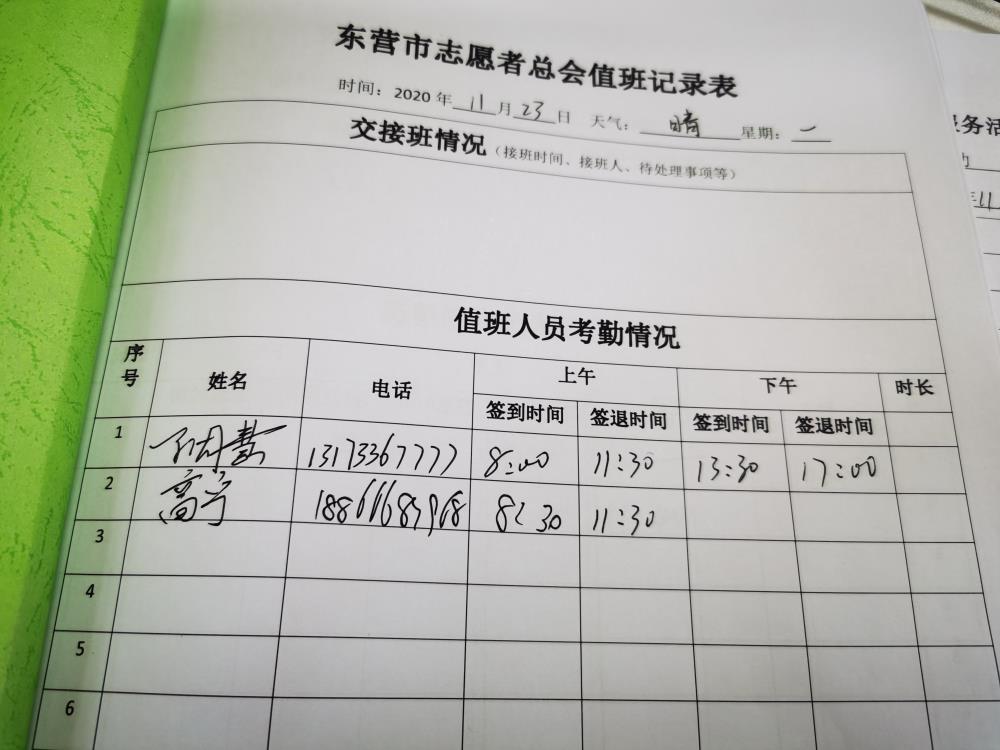 东营市志愿者总会值班记录表
时间：2020年 11 月 23 日 天气： 晴 星期： 一
交接班情况（接班时间、接班人、待处理事项等）
值班人员考勤情况
序号 姓名 电话 上午 下午 时长
签到时间 签退时间 签到时间 签退时间
1 13173367777 8:00 11:30 13:30 17:00
2 高宁 8:30 11:30
3
4
5
6
服务活